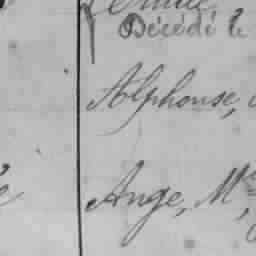 Décédé le
Alphonse,
Ange, M